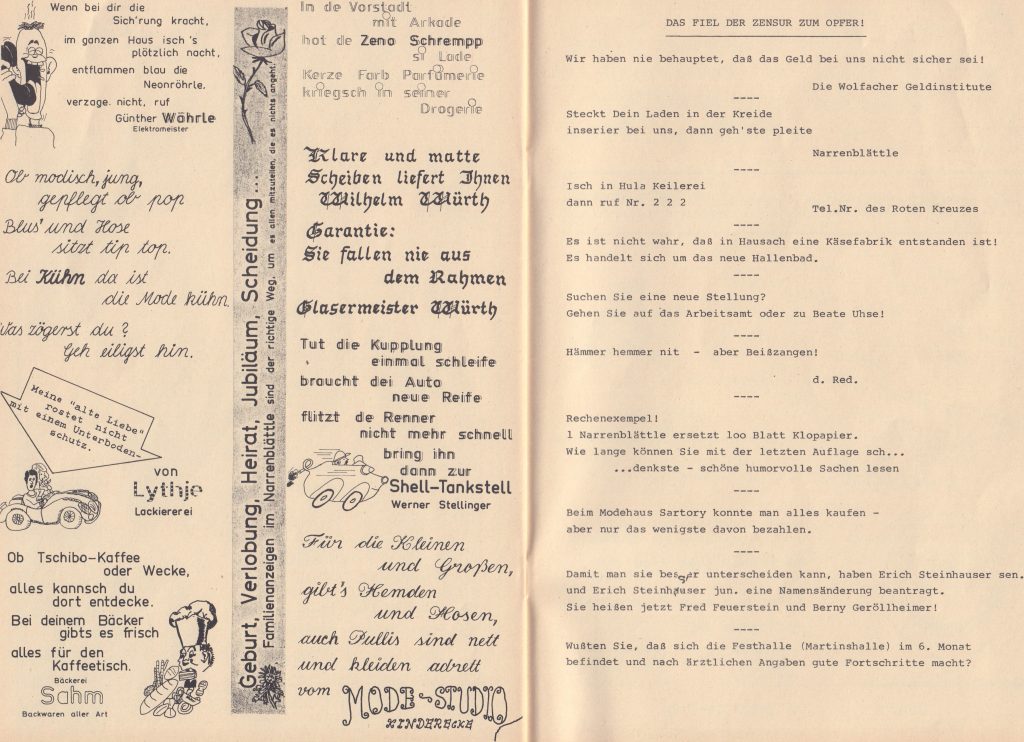 Wenn bei dir die
Sich'rung kracht,
im ganzen Haus isch's
plötzlich nacht,
entflammen blau die
Neonröhrle,
verzage nicht, ruf
Günther Wöhrle
Elektromeister
Ob modisch, jung,
gepflegt ob pop
Blus' und Hose
sitzt tip top.
Bei Kühn da ist
die Mode kühn.
Was zögerst du?
Geh eiligst hin.
Meine "alte Liebe"
rostet nicht
mit einem Unterboden-
schutz.
von
Lythje
Lackiererei
Ob Tschibo-Kaffee
oder Wecke,
alles kannsch du
dort entdecke.
Bei deinem Bäcker
gibts es frisch
alles für den
Kaffeetisch.
Bäckerei
Sahm
Backwaren aller Art
Geburt, Verlobung, Heirat, Jubiläum, Scheidung ...
Familienanzeigen im Narrenblättle sind der richtige Weg, um es allen mitzuteilen, die es nichts angeht!
In de Vorstadt
mit Arkade
hot de Zeno Schrempp
si Lade
Kerze Farb Parfümerie
kriegsch in seiner
Drogerie
Klare und matte
Scheiben liefert Ihnen
Wilhelm Würth
Garantie:
Sie fallen nie aus
dem Rahmen
Glasermeister Würth
Tut die Kupplung
einmal schleife
braucht dei Auto
neue Reife
flitzt de Renner
nicht mehr schnell
bring ihn
dann zur
Shell-Tankstell
Werner Stellinger
Für die Kleinen
und Großen,
gibt's Hemden
und Hosen,
auch Pullis sind nett
und kleiden adrett
vom MODE-STUDIO
KINDERECKE
DAS FIEL DER ZENSUR ZUM OPFER!
Wir haben nie behauptet, daß das Geld bei uns nicht sicher sei!
Die Wolfacher Geldinstitute
----
Steckt Dein Laden in der Kreide
inserier bei uns, dann geh'ste pleite
Narrenblättle
----
Isch in Hula Keilerei
dann ruf Nr. 2 2 2
Tel.Nr. des Roten Kreuzes
----
Es ist nicht wahr, daß in Hausach eine Käsefabrik entstanden ist!
Es handelt sich um das neue Hallenbad.
----
Suchen Sie eine neue Stellung?
Gehen Sie auf das Arbeitsamt oder zu Beate Uhse!
----
Hämmer hemmer nit - aber Beißzangen!
d. Red.
----
Rechenexempel!
1 Narrenblättle ersetzt loo Blatt Klopapier.
Wie lange können Sie mit der letzten Auflage sch...
...denkste - schöne humorvolle Sachen lesen
----
Beim Modehaus Sartory konnte man alles kaufen -
aber nur das wenigste davon bezahlen.
----
Damit man sie besser unterscheiden kann, haben Erich Steinhauser sen.
und Erich Steinhauser jun. eine Namensänderung beantragt.
Sie heißen jetzt Fred Feuerstein und Berny Geröllheimer!
----
Wußten Sie, daß sich die Festhalle (Martinshalle) im 6. Monat
befindet und nach ärztlichen Angaben gute Fortschritte macht?